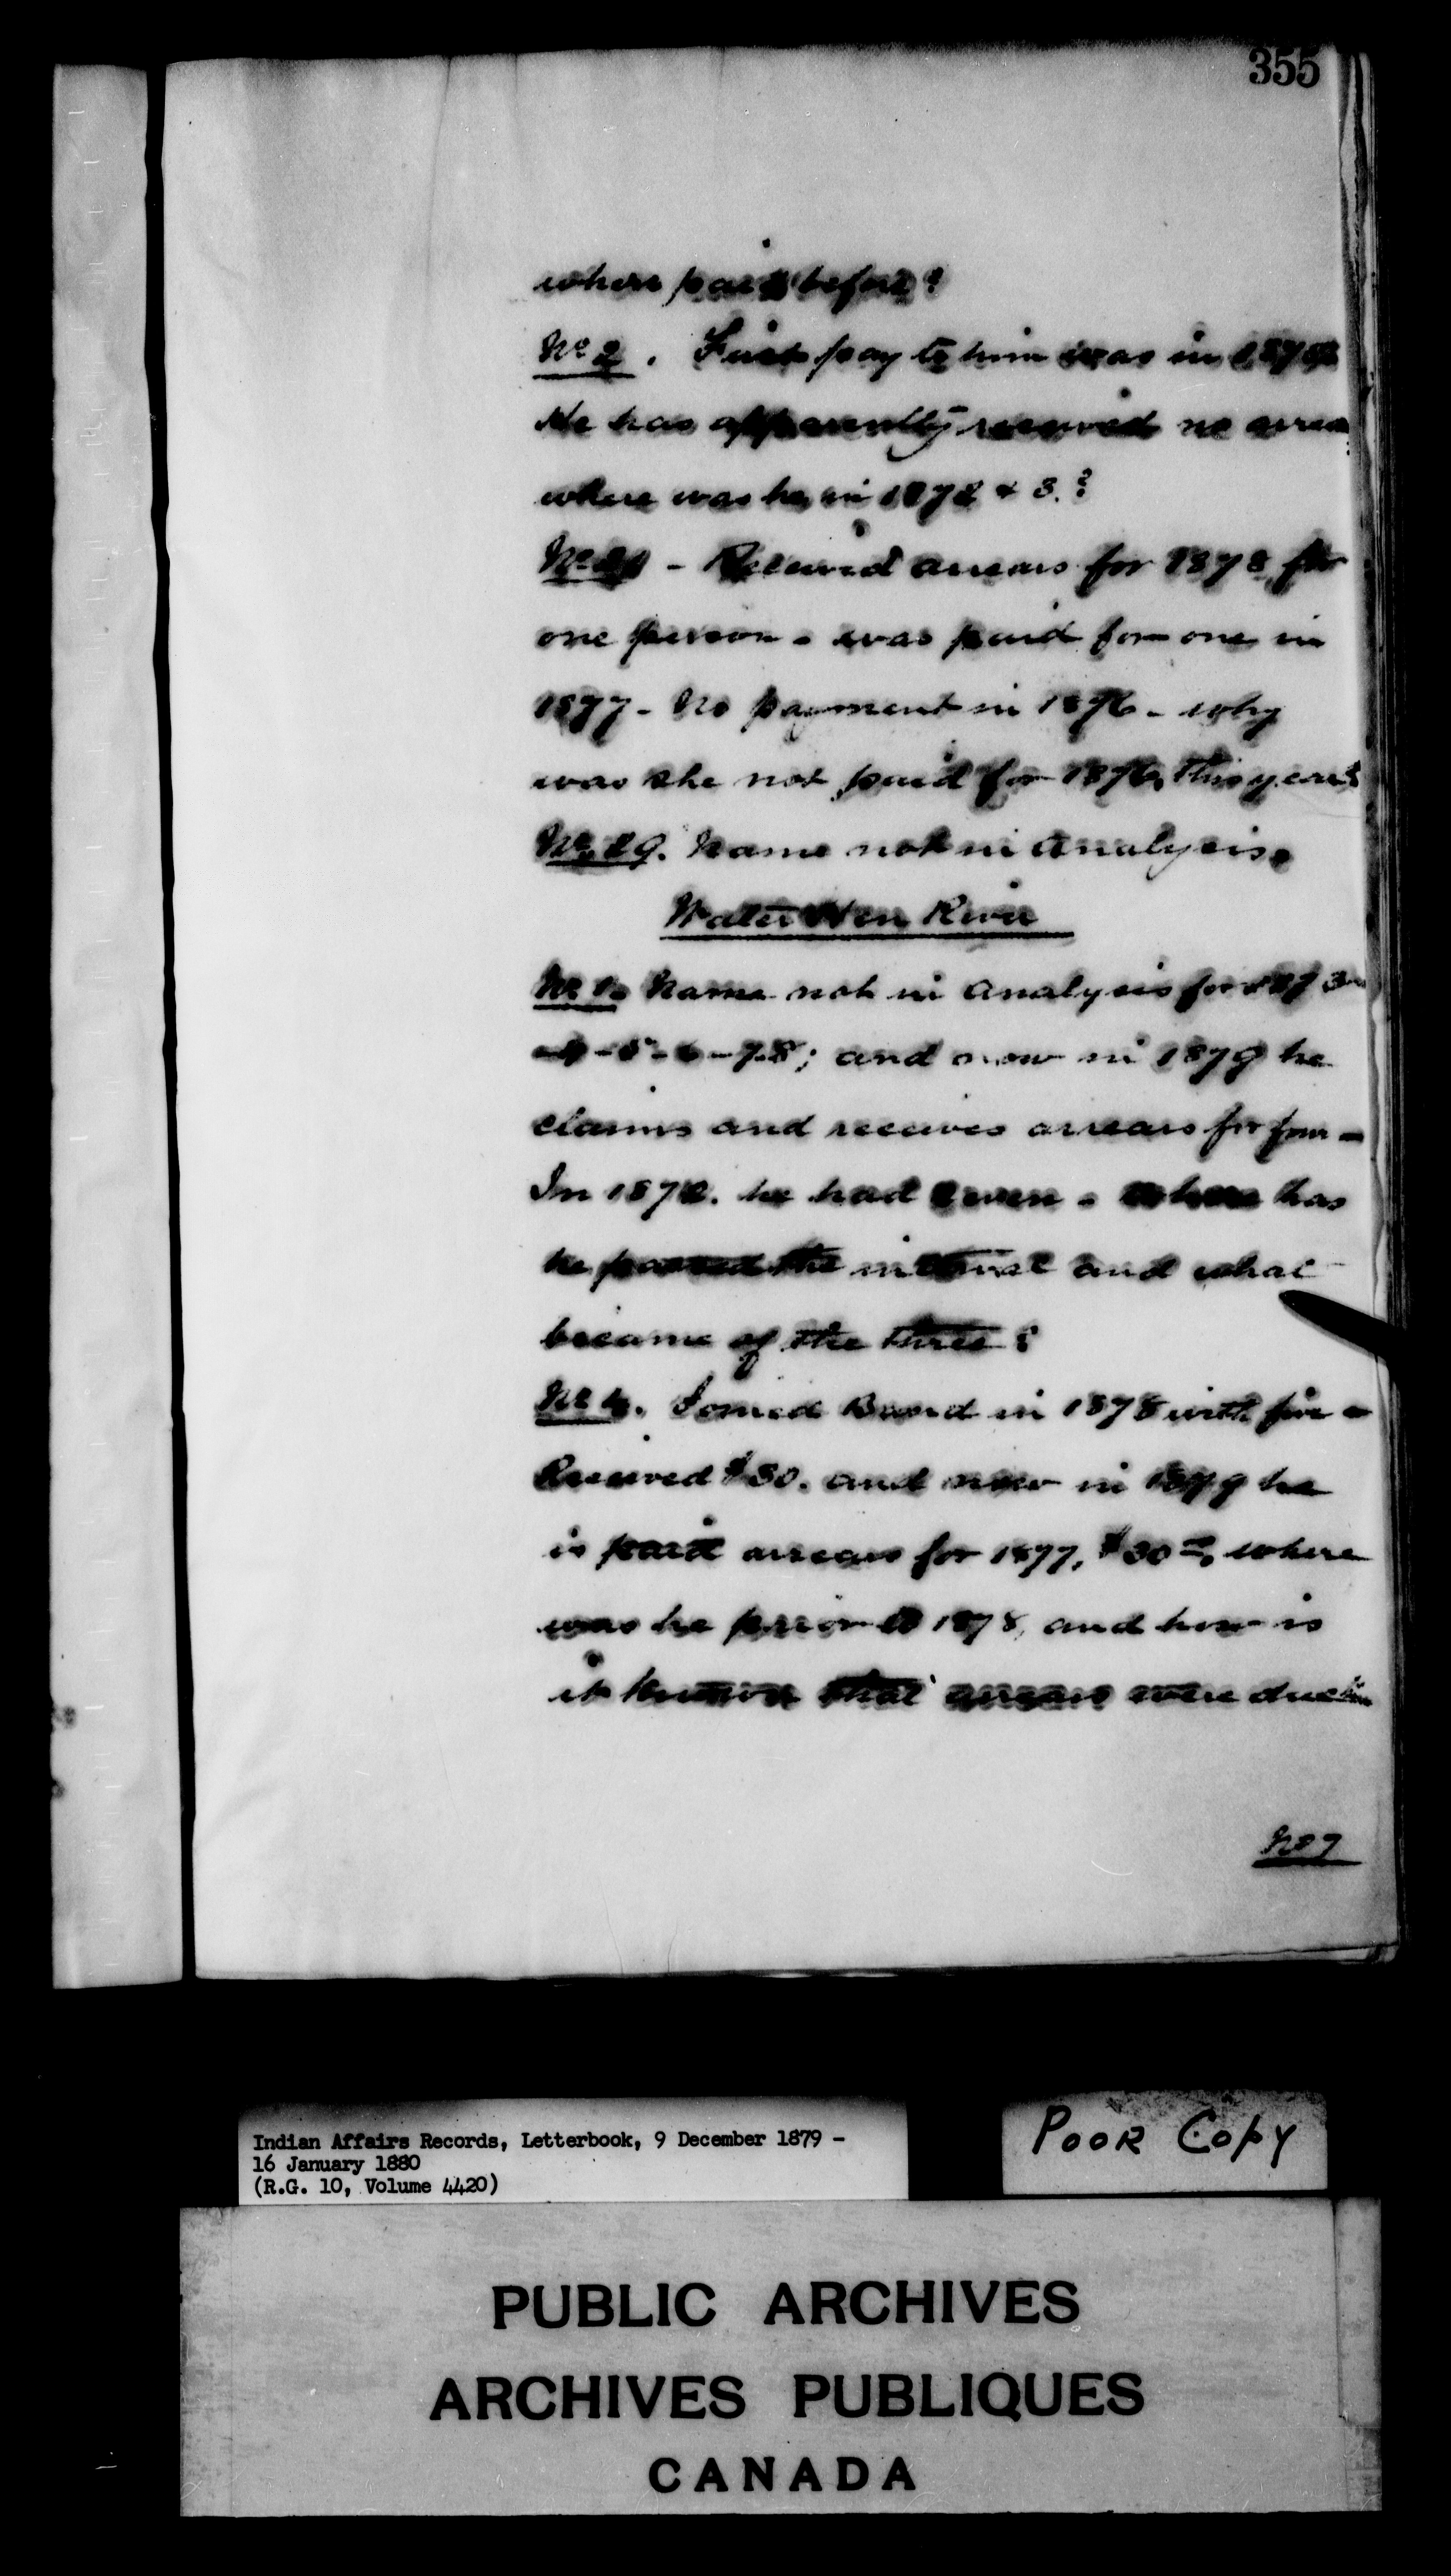 355
where paid before?
No 2. First pay to him was in 1874
He has apparently received no arrears
where was he in 1872 & 3.?
No 21 - Received arrears for 1878 for
one person - was paid for one in
1877 - No payment in 1876 - why
was she not paid for 1876, this year?
No 29. Name not in Analysis.
Water Hen River
No 1. Name not in Analysis for 1873
-4-5-6-7-8; and now in 1879 he
claims and receives arrears for four -
In 1872. he had seven - where has
he passed the interval and what
became of the three?
No 4. Joined Band in 1878 with five -
Received $30. and now in 1879 he
is paid arrears for 1877, $30 where
was he prior to 1878, and how is
it known that arrears were due him
No 7
Indian Affairs Records, Letterbook, 9 December 1879 -
16 January 1880
(R.G. 10, Volume 4420)
POOR COPY
PUBLIC ARCHIVES
ARCHIVES PUBLIQUES
CANADA